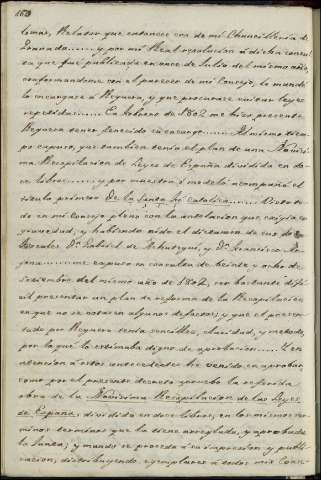 lomas, Relator que entonces era de mi Chancilleria de
Granada...... y por mi Real resolucion á dicha consul
ta que fué publicada en once de Julio del mismo año,
conformandome con el parecer de mi Consejo, le mandé
lo encargase á Reguera, y que procurase unir leyes
repetidas...... En febrero de 1802 me hizo presente
Reguera tener fenecido su encargo....... Al mismo tiem
po expuso, que tambien tenia el plan de una Novisi
ma Recopilacion de Leyes de España dividida en do
ce libros......, y por muestra ó modelo acompañó el
titulo primero De la Santa fé Catolica....... Visto to
do en mi Consejo pleno con la antelacion que exigia su
gravedad, y habiendo oido el dictamen de sus dos
Fiscales Dn. Gabriel de Achutegui, y Dn. Francisco Ar
jona....... me expuso en consulta de veinte y ocho de
setiembre del mismo año de 1802, ser bastante difi
cil presentar un plan de reforma de la Recopilacion
en que no se notasen algunos defectos; y que el presen
tado por Reguera tenia sencillez, claridad, y metodo,
por lo que lo estimaba digno de aprobacion...... Y en
atencion á estos antecedentes he venido en aprobar,
como por el presente decreto apruebo la referida
obra de la Novisima Recopilacion de las Leyes
de España, dividida en doce libros, en los mismos ter
minos terminos que la tiene arreglada, y aprobada
la Junta; y mando se proceda á su impresion y publi
cacion, distribuyendo exemplares á todos mis Conse